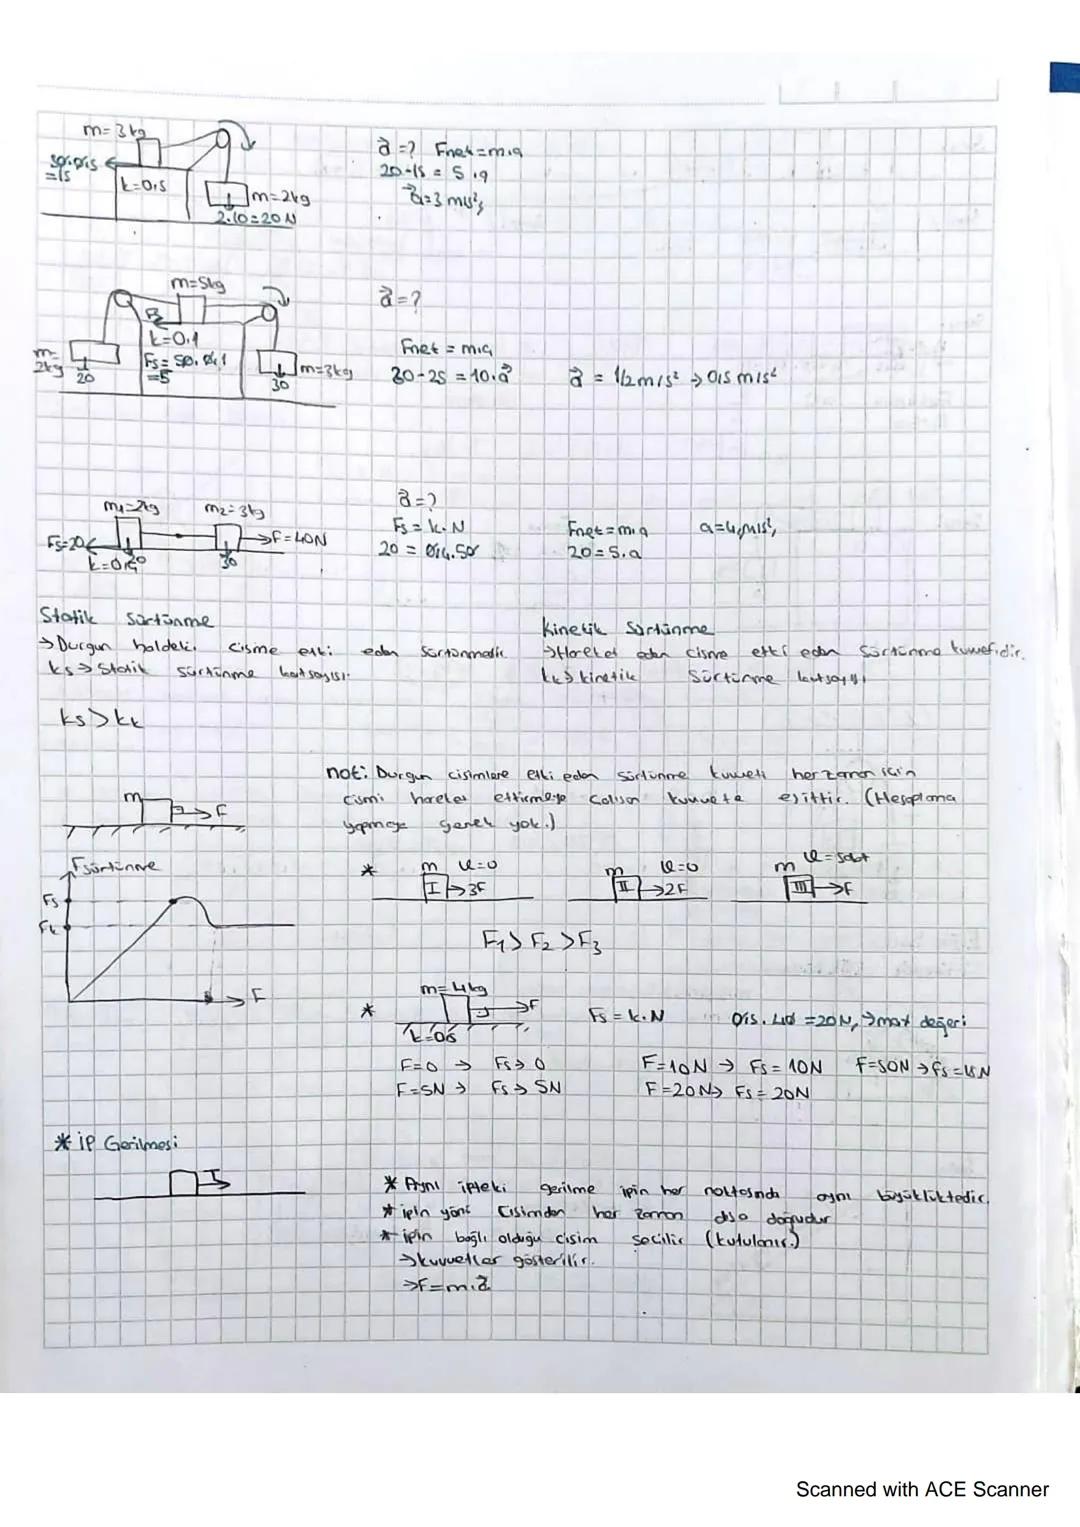 m=3kg
30.0,5
=15
k=0,5
m=2kg
2.10=20N
a=? Fnet=m.a
20-15 = 5.a
a=3 m/s²
m=5kg
a=?
k=0.1
Fs= 50.0,1
=5
m=
2kg
20
m=3kg
30
Fnet = m.a
30-25 = 10.a
a = 1/2 m/s² → 0,5 m/s²
m1=2kg
m2=3kg
Fs=20
k=0,4
20
30
F=40N
a=?
Fs = k.N
20 = 0,4.50
Fnet=m.a
20=5.a
a=4 m/s²
Statik Sürtünme
→Durgun haldeki cisme etki eden sürtünmedir.
ks→ Statik sürtünme katsayısı.
Kinetik Sürtünme
→Hareket eden cisme etki eden sürtünme kuvvetidir.
kk→ kinetik sürtünme katsayısı
ks > kk
not: Durgun cisimlere etki eden sürtünme kuvveti her zaman için
cismi hareket ettirmeye çalışan kuvvete eşittir. (Hesaplama
yapmaya gerek yok.)
m
F
Fsürtünme
Fs
Fk
F
*
m V=0
I →3F
m V=0
II →2F
m V=sabt
III →F
F1 > F2 > F3
*
m=4kg
F
k=0,5
Fs = k.N
0,5. 40 =20N, →max değeri
F=0 → Fs→ 0
F=5N → Fs→ 5N
F=10N → Fs = 10N
F=20N→ Fs = 20N
F=50N →fs=15N
* İP Gerilmesi
T
* Aynı ipteki gerilme ipin her noktasında aynı büyüklüktedir.
* ipin yönü cisimden her zaman dışa doğrudur
* ipin bağlı olduğu cisim seçilir (kutulanır.)
→kuvvetler gösterilir.
→F=m.a
Scanned with ACE Scanner